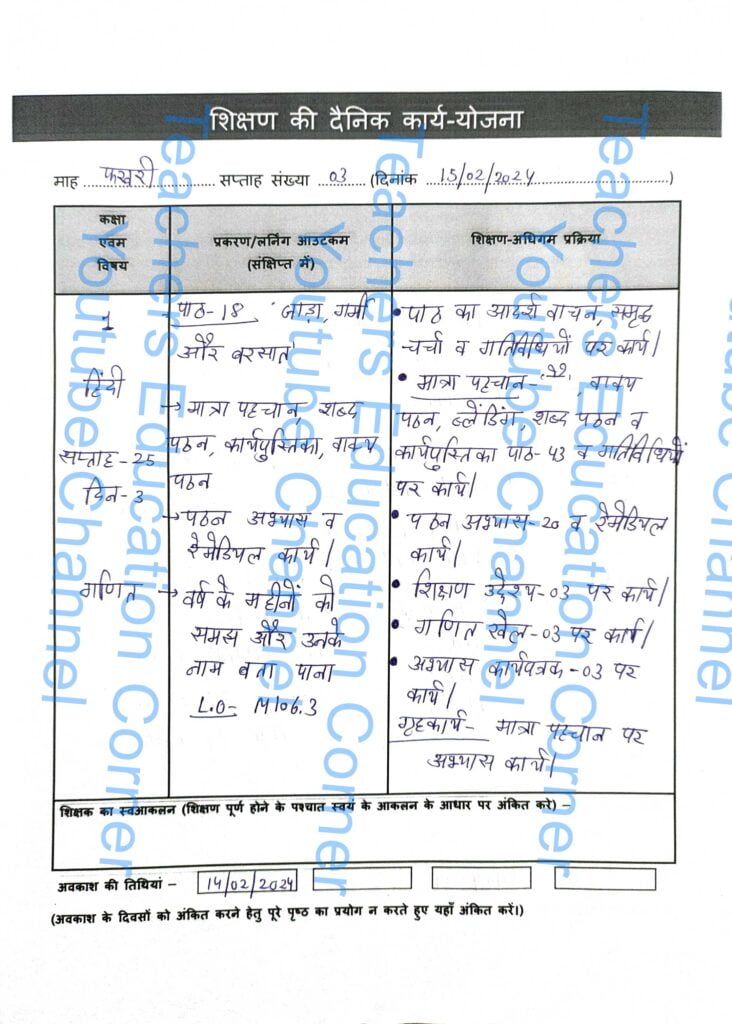 शिक्षण की दैनिक कार्य-योजना
माह फरवरी सप्ताह संख्या 03 (दिनांक 15/02/2024)
कक्षा
एवम
विषय
प्रकरण/लर्निंग आउटकम
(संक्षिप्त में)
शिक्षण-अधिगम प्रक्रिया
1
हिंदी
सप्ताह-25
दिन-3
गणित
पाठ-18 'जाड़ा, गर्मी
और बरसात'
→ मात्रा पहचान, शब्द
पठन, कार्यपुस्तिका, वाक्य
पठन
→ पठन अभ्यास व
रेमेडियल कार्य।
→ वर्ष के महीनों को
समझ और उनके
नाम बता पाना
L.O- M106.3
• पाठ का आदर्श वाचन, समृद्ध
चर्चा व गतिविधियों पर कार्य।
• मात्रा पहचान- वाक्य
पठन, ब्लेंडिंग, शब्द पठन व
कार्यपुस्तिका पाठ-43 व गतिविधियों
पर कार्य।
• पठन अभ्यास-20 व रेमेडियल
कार्य।
• शिक्षण उद्देश्य-03 पर कार्य।
• गणित खेल-03 पर कार्य।
• अभ्यास कार्यपत्रक-03 पर
कार्य।
गृहकार्य- मात्रा पहचान पर
अभ्यास कार्य।
शिक्षक का स्वआकलन (शिक्षण पूर्ण होने के पश्चात स्वयं के आकलन के आधार पर अंकित करे) –
अवकाश की तिथियां – 14/02/2024
(अवकाश के दिवसों को अंकित करने हेतु पूरे पृष्ठ का प्रयोग न करते हुए यहाँ अंकित करें।)
Teachers Education Corner
Youtube Channel
Teachers Education Corner
Youtube Channel
Teachers
ube Channel